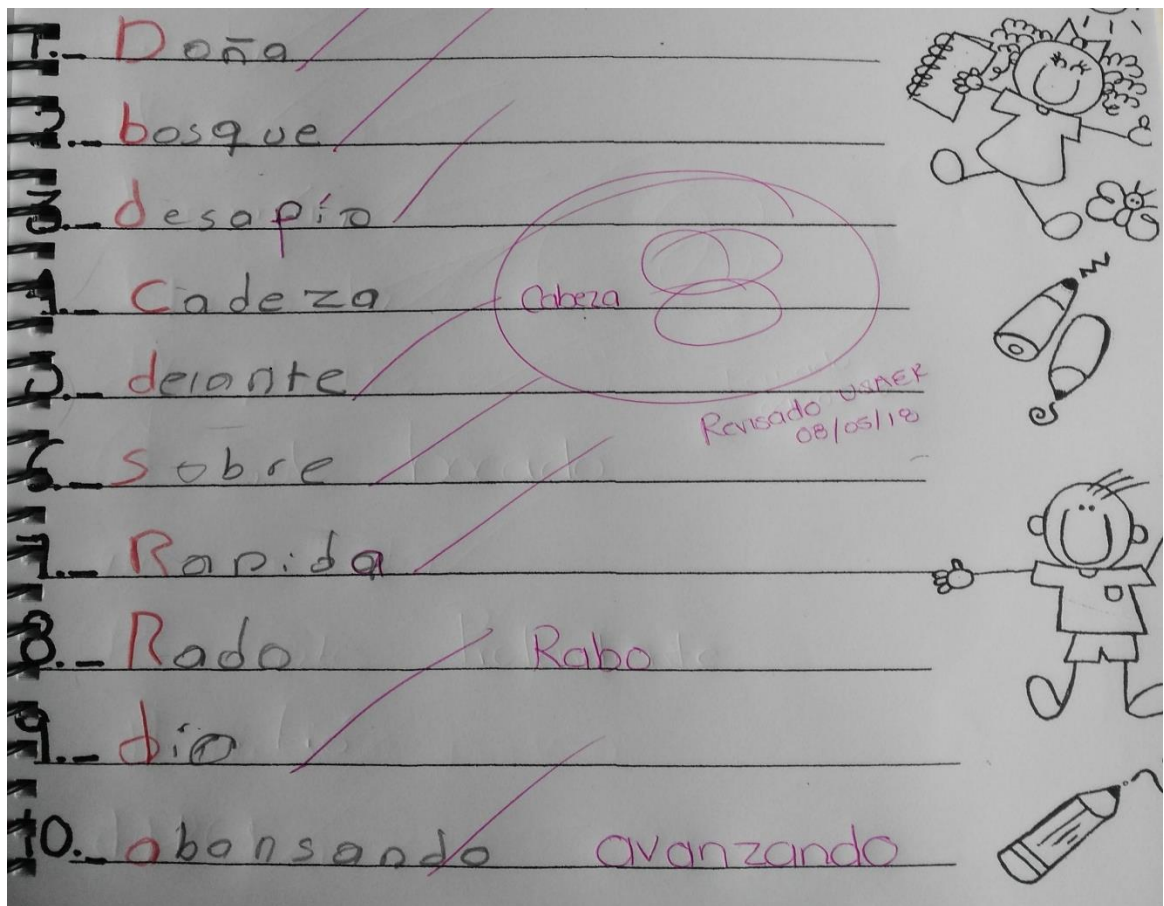 1._ Doña
2._ bosque
3._ desapío
4._ Cadeza Cabeza
8
5._ delante
Revisado USAER
08/05/18
6._ Sobre
7._ Rapida
8._ Rado Rabo
9._ dio
10._ abansando avanzando